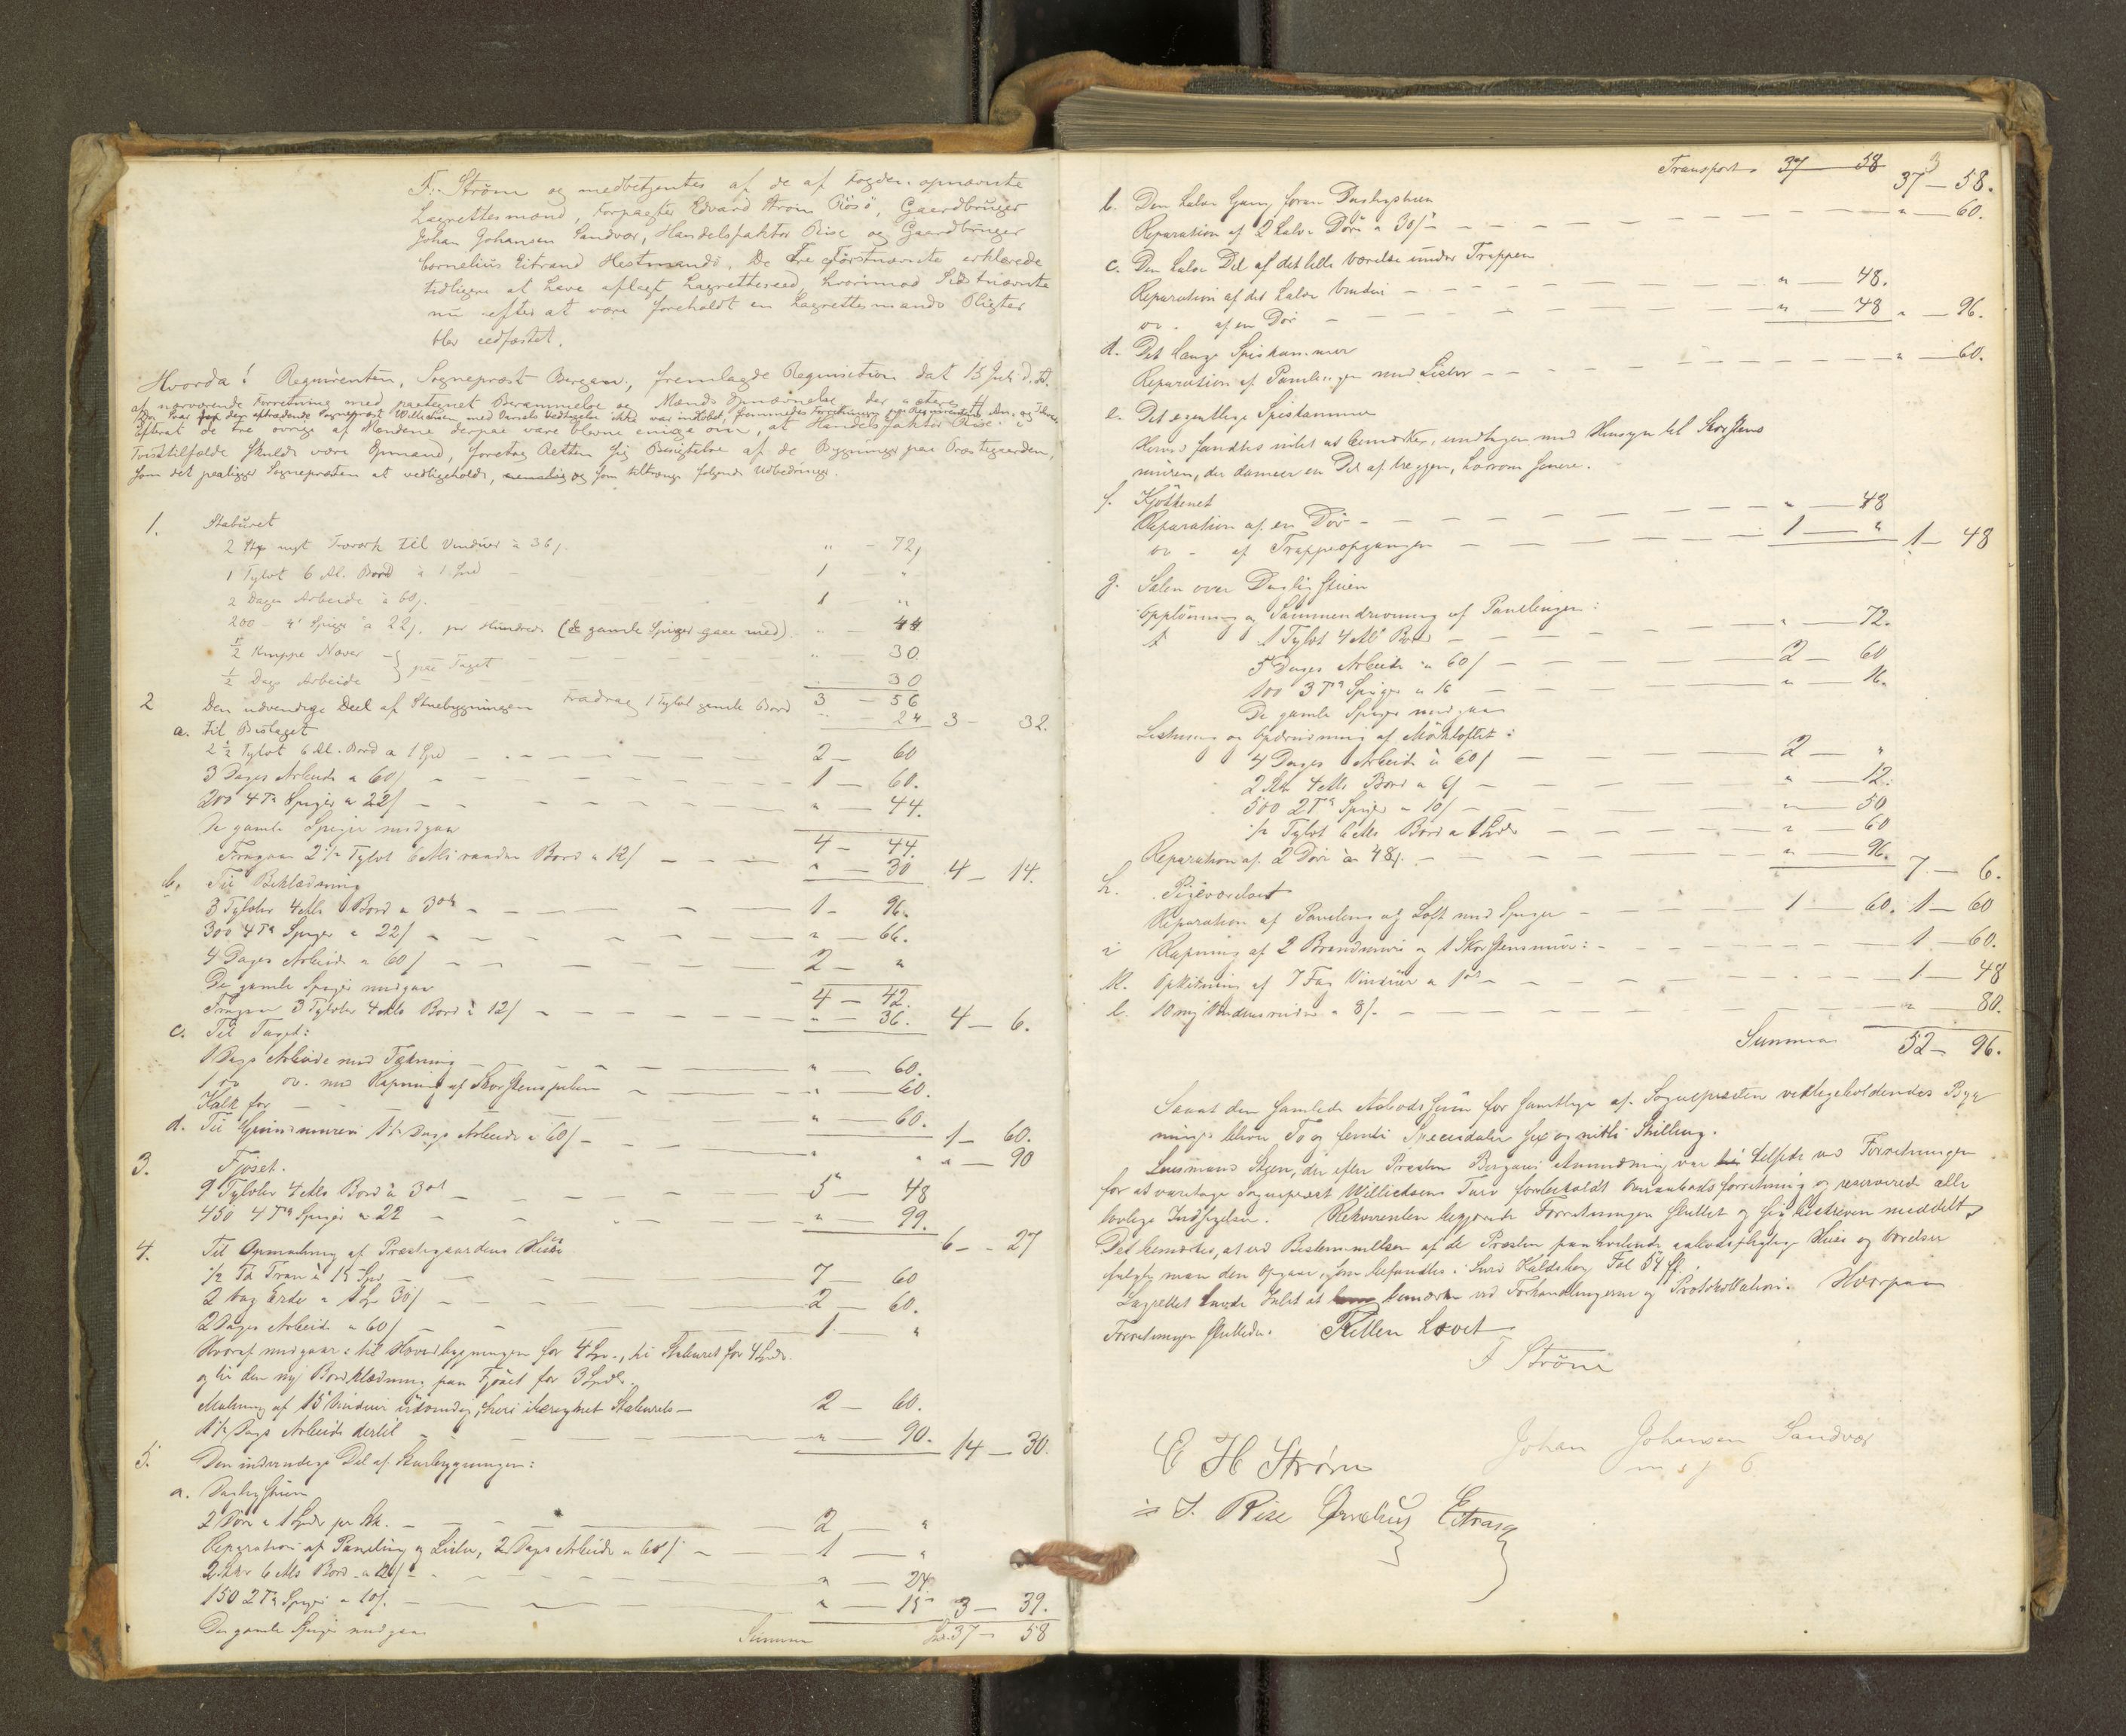 F. Strøm og medbetjentes af de af Fogden opnævnte
Lagrettesmænd, Forpagter Edvard Strøm Rösö, Gaardbruger
Johan Johansen Sandvær, Handelsfaktor Rise og Gaardbruger
Cornelius Eitrand Hestmandö. De Tre Förstnævnte erklærede
tidligere at have aflagt Lagretteseed, hvorimod Sidstnævnte
nu efter at være foreholdt en Lagrettesmands Pligter
blev eedfæstet.
Hvorda! Requirenten, Sognepræst Bergan, fremlagde Requisition dat 15 Juli d. A.
af nærværende Forretning med paategnet Berammelse og Mænds Opnævnelse, der acteres
Efterat de tre øvrige af Mændene derpaa vare blevne enige om, at Handelsfaktor Rise i
Tvisttilfælde skulde være Opmand, foretog Retten sig Besigtelse af de Bygninger paa Præstegaarden,
som det paaligger Sognepræsten at vedligeholde, og som tiltrænge følgende Udbedringer.
1. Staburet
2 Stkr nyt Tværk til Vinduer à 36 ſ. " - 72,
1 Tylvt 6 Al. Bord à 1 Spd 1 - "
2 Dages Arbeide à 60 ſ. 1 "
200 - 4" Spiger à 22 ſ. pr Hundrede (de gamle Spiger gaae med) " - 44
1/2 Knippe Næver } paa Taget " - 30.
1/2 Dags Arbeide " - 30
3 - 56
Fradrag 1 Tylvt gamle Bord " - 24 3 - 32.
2 Den udvendige Deel af Stuebygningen
a. til Bislaget
2 1/2 Tylvt 6 Al. Bord a 1 Spd 2 - 60
3 Dages Arbeide a 60 ſ 1 - 60.
200 4 T" Spiger a 22 ſ " - 44.
De gamle Spiger medgaa 4 - 44.
Fragaaer 2 1/2 Tylvt 6 Als raadne Bord a 12 ſ " - 30 4 - 14.
b. Til Beklædning
3 Tylvter 4 Als Bord a 3 ort 1 - 96.
300 4 T" Spiger a 22 ſ " - 66.
4 Dages Arbeide a 60 ſ 2 - "
De gamle Spiger medgaa 4 - 42.
Fragaaer 3 Tylvter 4 Als Bord à 12 ſ " - 36. 4 - 6.
c. Til Taget:
1 Dags Arbeide med Tækning " - 60.
1 do do. med Rapning af Skorstenspiben " - 60.
Kalk for " - 60. 1 - 60.
d. Til Grundmuren 1 1/2 Dags Arbeide a 60 ſ " - 90
3. Fjöset.
9 Tylvter 4 Als Bord à 3 ort 5 - 48
450 4 T" Spiger a 22 " - 99. 6 - 27
4. Til Opmaling af Præstegaardens Huse
1/2 Td Tran à 15 Spd 7 - 60
2 Vog Erde a 1 Sp 30 ſ 2 - 60.
2 Dages Arbeide a 60 ſ 1 - "
Hvoraf medgaaer: til Hovedbygningen for 4 Sp., til Staburet for 4 Spd.
og til den ny Bordklædning paa Fjöset for 3 Spdr.
Malning af 15 Vinduer udvendig, heri iberegnet Staburets 2 - 60.
1 1/2 Dags Arbeide dertil " - 90. 14 - 30.
5. Den indvendige Del af Stuebygningen:
a. Dagligstuen
2 Döre a 1 Spdr pr Stk. 2 - "
Reparation af Paneling og Lister, 2 Dages Arbeide a 60 ſ 1 - "
2 Stkr 6 Als Bord a 12 ſ " - 24.
150 2 T" Spiger a 10 ſ. " - 15 3 - 39.
De gamle Spiger medgaa
Summa Spd. 37 - 58
Transport 37 - 58 37 - 58.
b. Den halve Gang foran Dagligstuen
Reparation af 2 halve Döre a 30 ſ " - 60.
c. Den halve Del af det lille Værelse under Trappen
Reparation af det halve Vindu " - 48.
do. af en Dör " - 48 " - 96.
d. Det lange Spiskammer
Reparation af Panelingen med Lister " - 60.
e. Det egentlige Spiskammer
Herved fandtes intet at bemærke, undtagen med Hensyn til Skorstens
muren, der danner en Del af Væggen, hvorom senere.
f. Kjökkenet
Reparation af en Dör " - 48
do - af Trappeopgangen 1 - " 1 - 48
g. Salen over Dagligstuen
Opplöining og Sammendrivning af Panelingen:
1 Tylvt 4 Als Bord " - 72.
5 Dages Arbeide a 60 ſ 2 - 60
100 3 T" Spiger a 16 " - 16.
De gamle Spiger medgaa
Listning og Opdrivning af Mörkloftet:
4 Dages Arbeide à 60 ſ 2 - "
2 Stk 4 Als Bord a 6 ſ " - 12.
500 2 T" Spiger a 10 ſ " - 50
1/2 Tylvt 6 Als Bord a 1 Spdr " - 60
Reparation af 2 Döre à 48 ſ. " - 96. 7 - 6.
h. Pigeværelset
Reparation af Paneling og Loft med Spiger 1 - 60. 1 - 60
i Rapning af 2 Brandmure og 1 Skorstensmur: 1 - 60.
k. Opkitning af 7 Fag Vinduer a 1 ort 1 - 48
l. 10 ny Vinduesruder a 8 ſ. " - 80.
Summa 52 - 96.
Saaat den samlede Aabodssum for samtlige af Sognepræsten vedligeholdendes Byg
ninger bliver To og femti Speciedaler sex og nitti Skilling.
Lensmand Skjen, der efter Præsten Bergans Anmodning var tilstede ved Forretningen
for at varetage Sognepræst Willichsens Tarv forbeholdt Overaabodsforretning og reserverede alle
lovlige Indsigelser. Rekvirenten begjærede Forretningen sluttet og sig beskreven meddelt.
Det bemærkes, at ved Bestemmelsen af de Præsten paahvilende aabodspligtige Huse og Værelser
fulgte man den Opgave, som befandtes i Lurö Kaldsbog Fol 54 ff.
Lagrettet havde Intet at bemærke ved Forhandlingerne og Protokollationen. Hvorpaa
Forretningen sluttedes. Retten hævet
F Ström
E H Strøm
Johan Johansen Sandvær
m s p 6
J. Rise Cornelius Eitrang